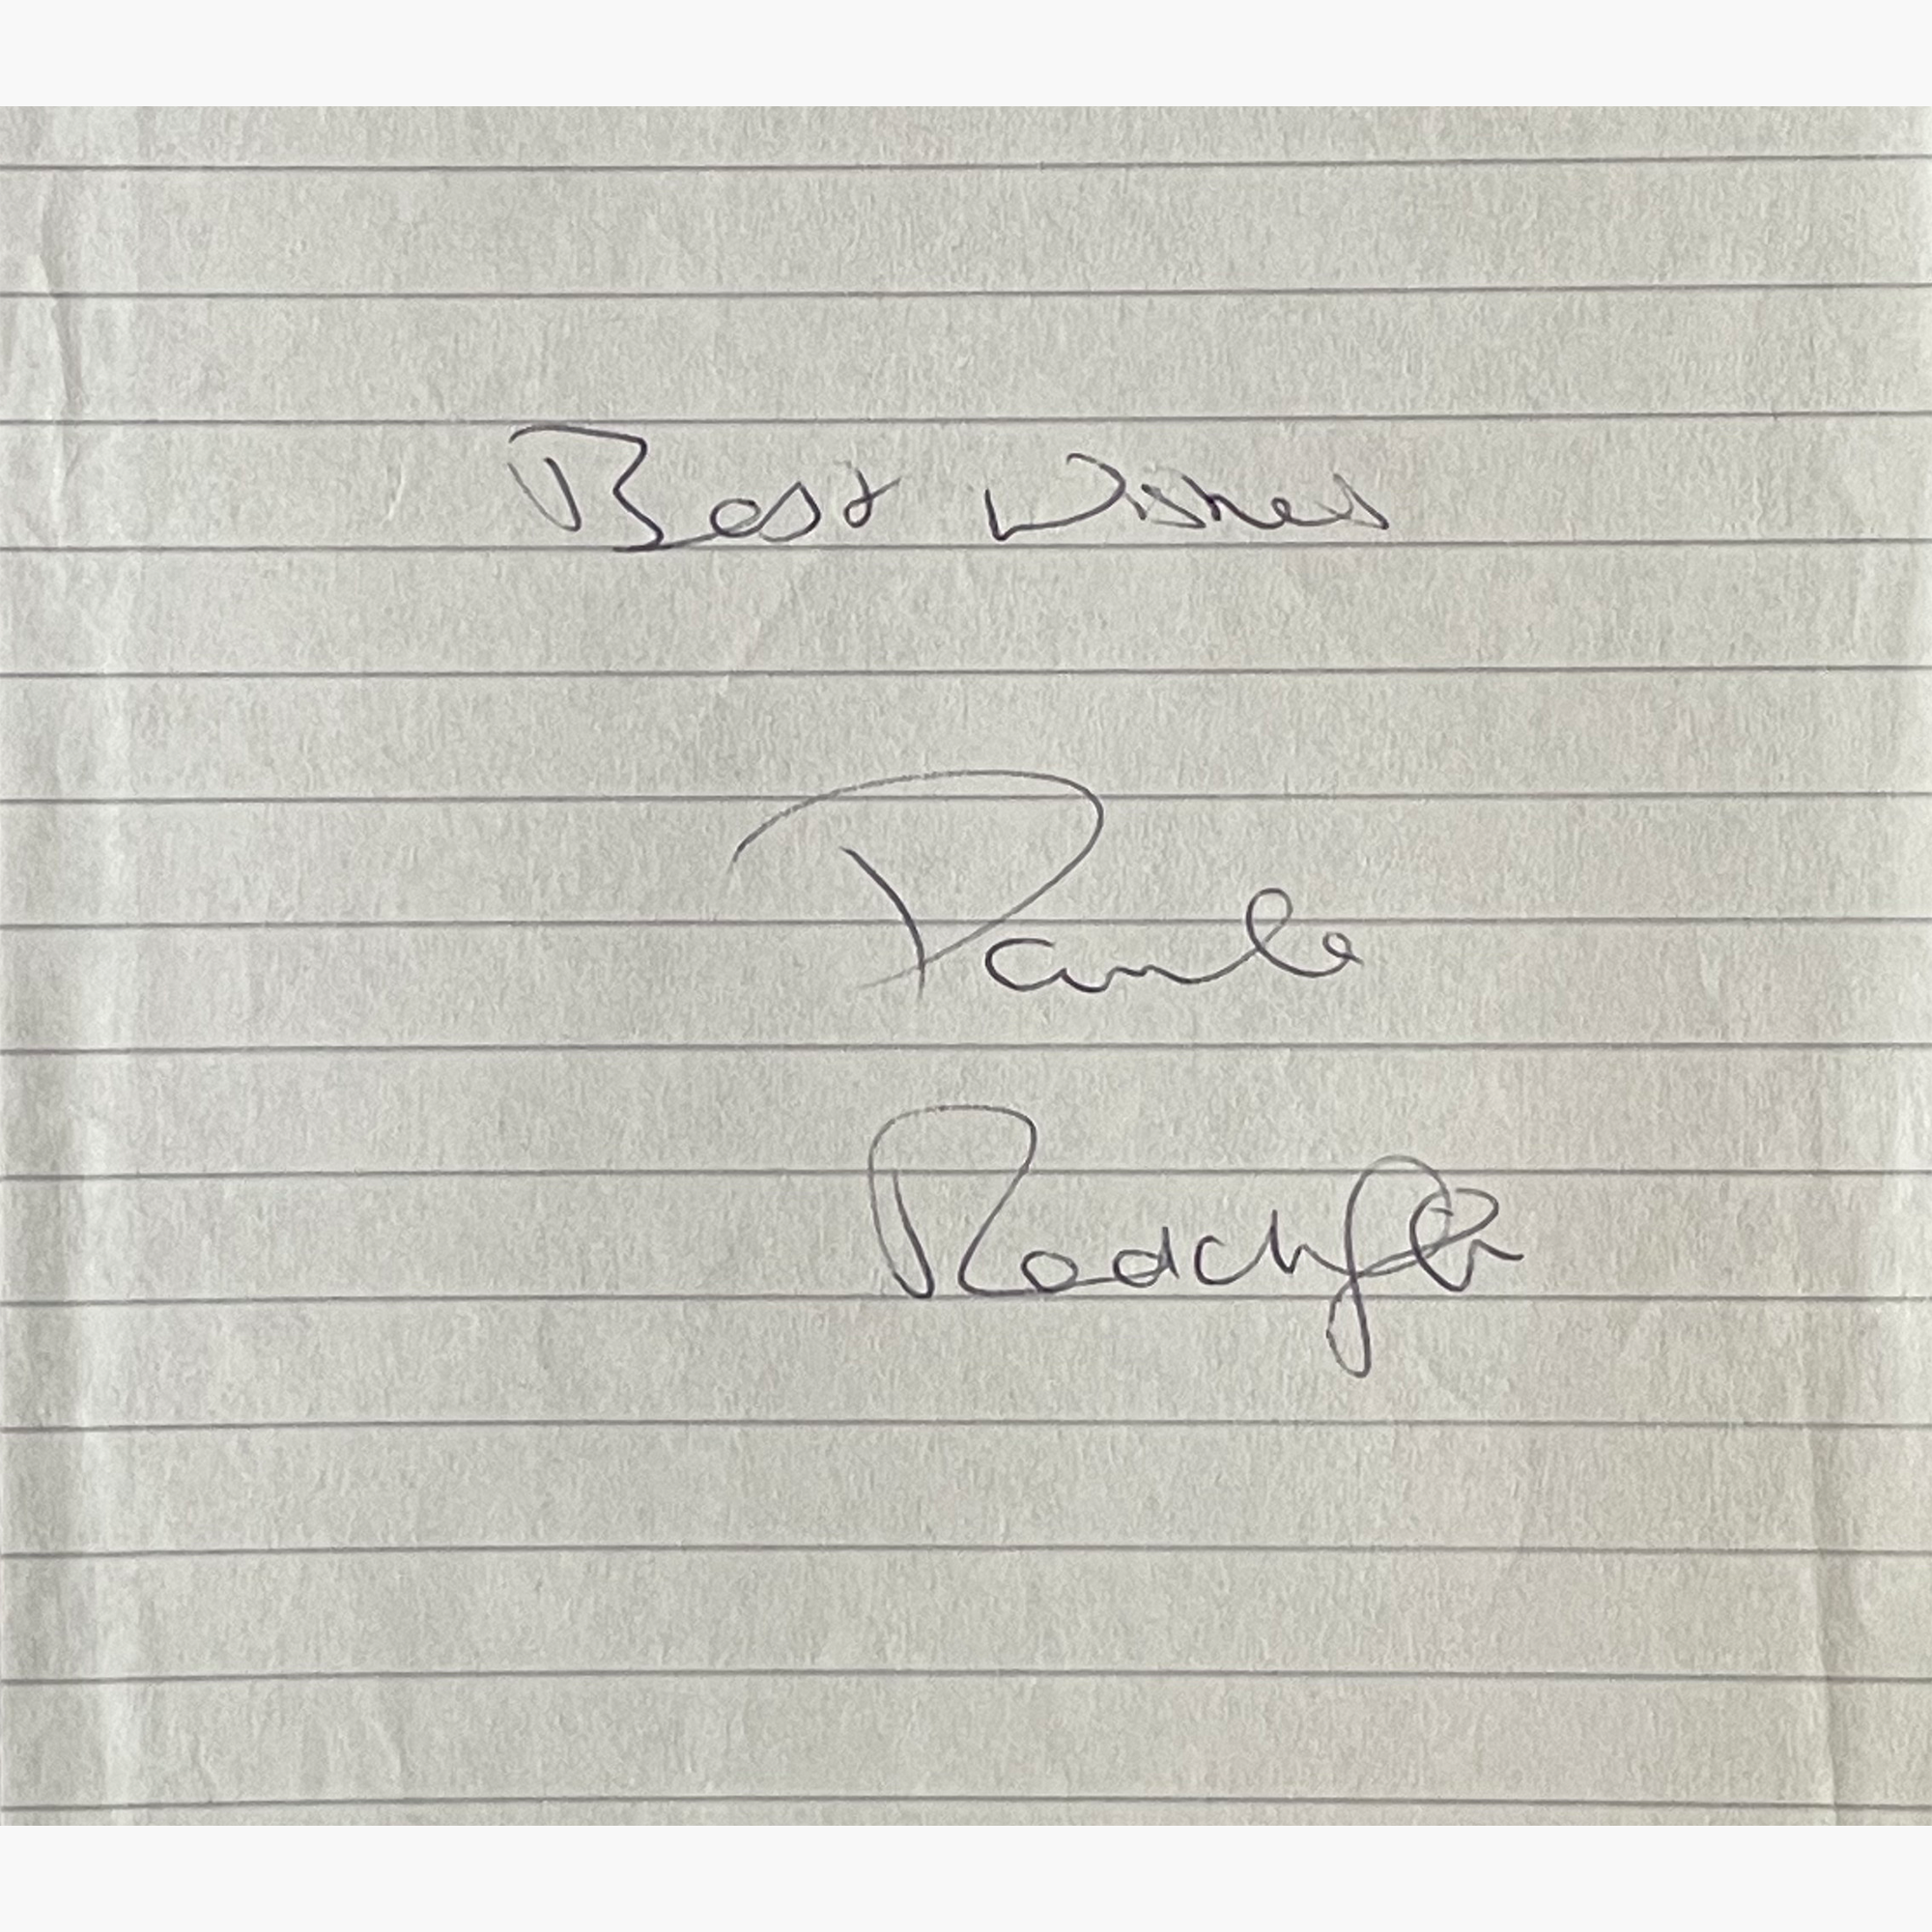 Best Wishes
Paula
Radcliffe